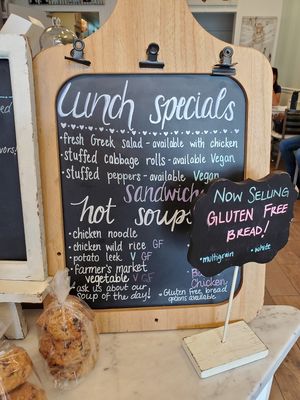 Lunch specials
fresh Greek salad - available with chicken
stuffed cabbage rolls - available Vegan
stuffed peppers - available Vegan
sandwiches
hot soups
• chicken noodle
• chicken wild rice GF
• potato leek V GF
• Farmer's market
vegetable V GF
ask us about our
soup of the day!
Chicken
• Gluten free, bread
options available
NOW SELLING
GLUTEN FREE
BREAD!
• multigrain • white